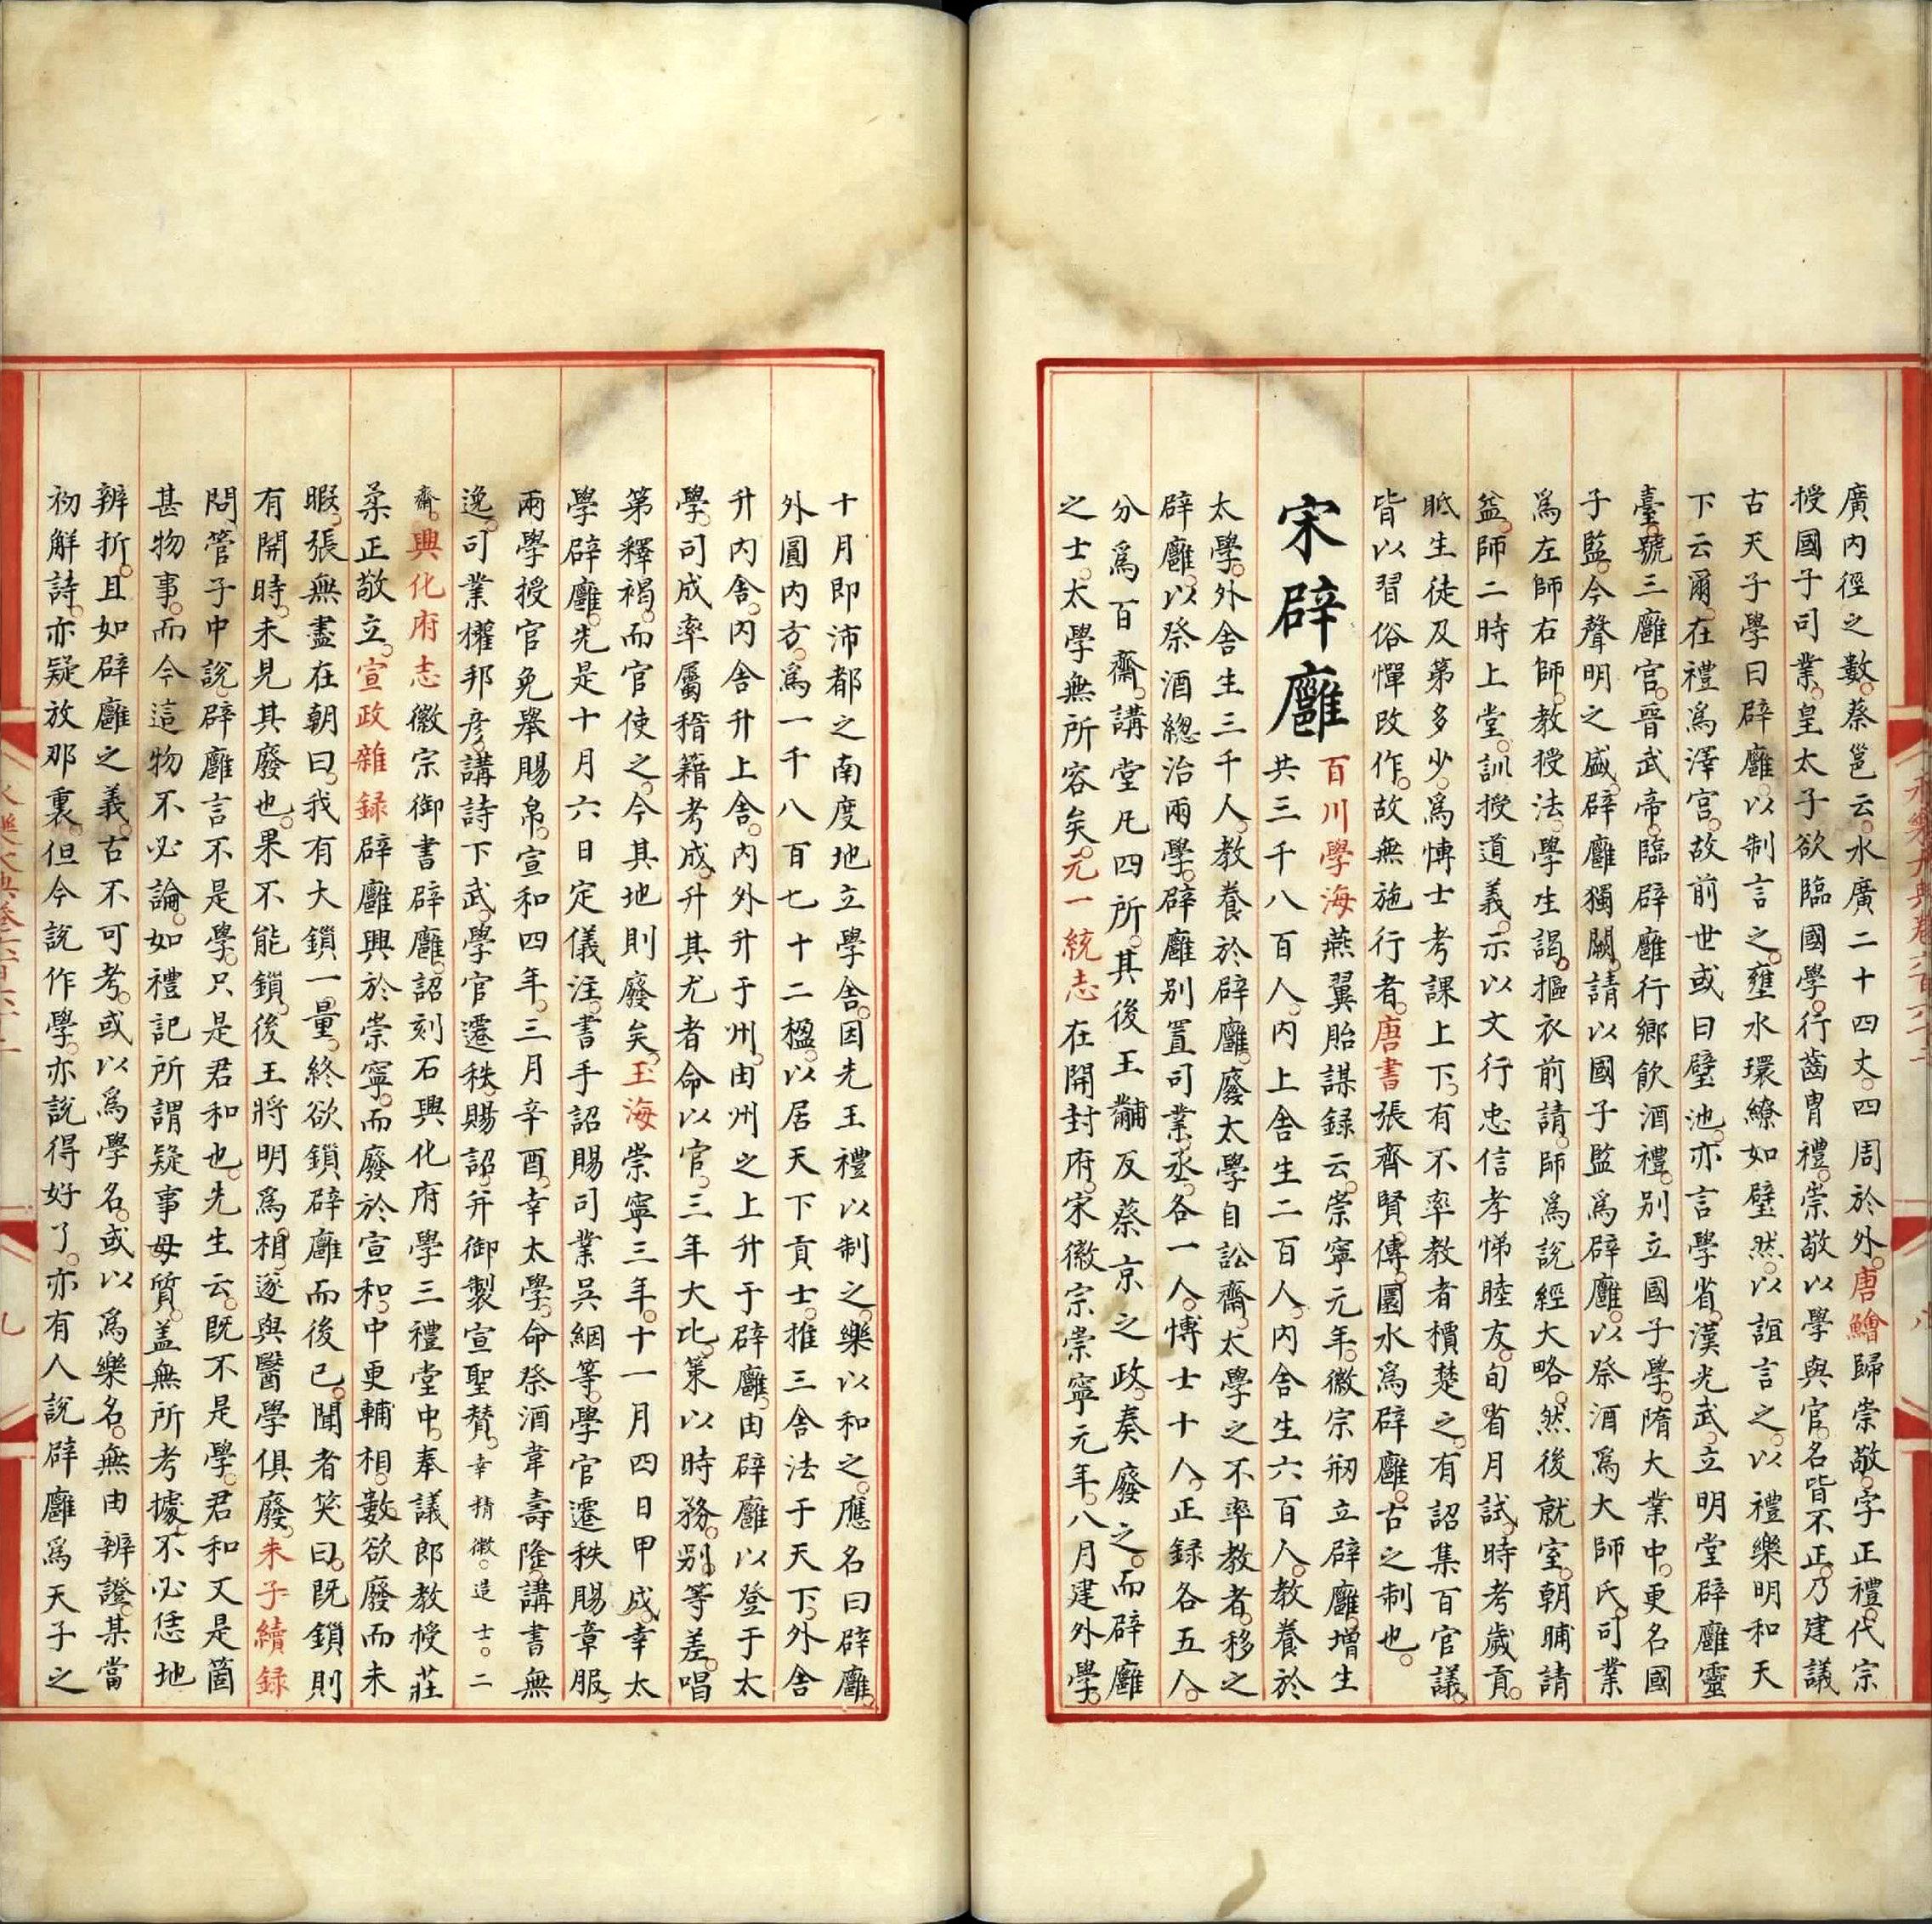 廣內徑之數。蔡邕云。水廣二十四丈。四周於外。唐鱠歸崇敬。字正禮。代宗
授國子司業。皇太子欲臨國學。行齒胄禮。崇敬以學與官。名皆不正。乃建議
古天子學曰辟廱。以制言之。壅水環繚如璧然。以誼言之。以禮樂明和天
下云爾。在禮爲澤宮。故前世或曰璧池。亦言學省。漢光武。立明堂辟廱靈
臺。號三廱宮。晉武帝。臨辟廱行鄉飲酒禮。别立國子學。隋大業中。更名國
子監。今聲明之盛。辟廱獨闕。請以國子監爲辟廱。以祭酒爲大師氏。司業
爲左師右師。教授法。學生謁。摳衣前請。師爲說經大略。然後就室。朝晡請
益。師二時上堂。訓授道義。示以文行忠信孝悌睦友。旬省月試。時考歲貢。
眂生徒及第多少。爲博士考課上下。有不率教者檟楚之。有詔集百官議。
皆以習俗憚改作。故無施行者。唐書張齊賢傳。圜水爲辟廱。古之制也。
宋辟廱
百川學海燕翼貽謀録云。崇寧元年。徽宗剏立辟廱。增生
共三千八百人。內上舍生二百人。內舍生六百人。教養於
太學。外舍生三千人。教養於辟廱。廢太學自訟齋。太學之不率教者。移之
辟廱。以祭酒總治兩學。辟廱别置司業。丞。各一人。博士十人。正録各五人。
分爲百齋。講堂凡四所。其後王黼反蔡京之政。奏廢之。而辟廱
之士。太學無所容矣。元一統志在開封府。宋徽宗崇寧元年。八月建外學。
十月即沛都之南度地立學舍。因先王禮以制之。樂以和之。應名曰辟廱。
外圓內方。爲一千八百七十二楹。以居天下貢士。推三舍法于天下。外舍
升內舍。內舍升上舍。內外升于州。由州之上升于辟廱。由辟廱以登于太
學。司成率屬稽籍考成。升其尤者命以官。三年大比。策以時務。别等差。唱
第釋褐。而官使之。今其地則廢矣。玉海崇寧三年。十一月四日甲戌。幸太
學辟廱。先是十月六日定儀注。書手詔賜司業吳絪等。學官遷秩賜章服。
兩學授官免舉賜帛。宣和四年。三月辛酉。幸太學。命祭酒韋壽隆。講書無
逸。司業權邦彦。講詩下武。學官遷秩。賜詔。并御製宣聖贊。幸精徽。造士。二
齋。興化府志徽宗御書辟廱。詔刻石興化府學三禮堂中。奉議郎教授莊
柔正敬立。宣政雜録辟廱興於崇寧。而廢於宣和。中更輔相。數欲廢而未
暇。張無盡在朝曰。我有大鎖一量。終欲鎖辟廱而後已。聞者笑曰。既鎖則
有開時。未見其廢也。果不能鎖。後王將明爲相。遂與醫學俱廢。朱子續録
問管子中說。辟廱言不是學。只是君和也。先生云。既不是學。君和又是箇
甚物事。而今這物不必論。如禮記所謂疑事毋質。盖無所考據。不必恁地
辨折。且如辟廱之義。古不可考。或以爲學名。或以爲樂名。無由辨證。某當
初解詩。亦疑放那裏。但今說作學。亦說得好了。亦有人說辟廱爲天子之